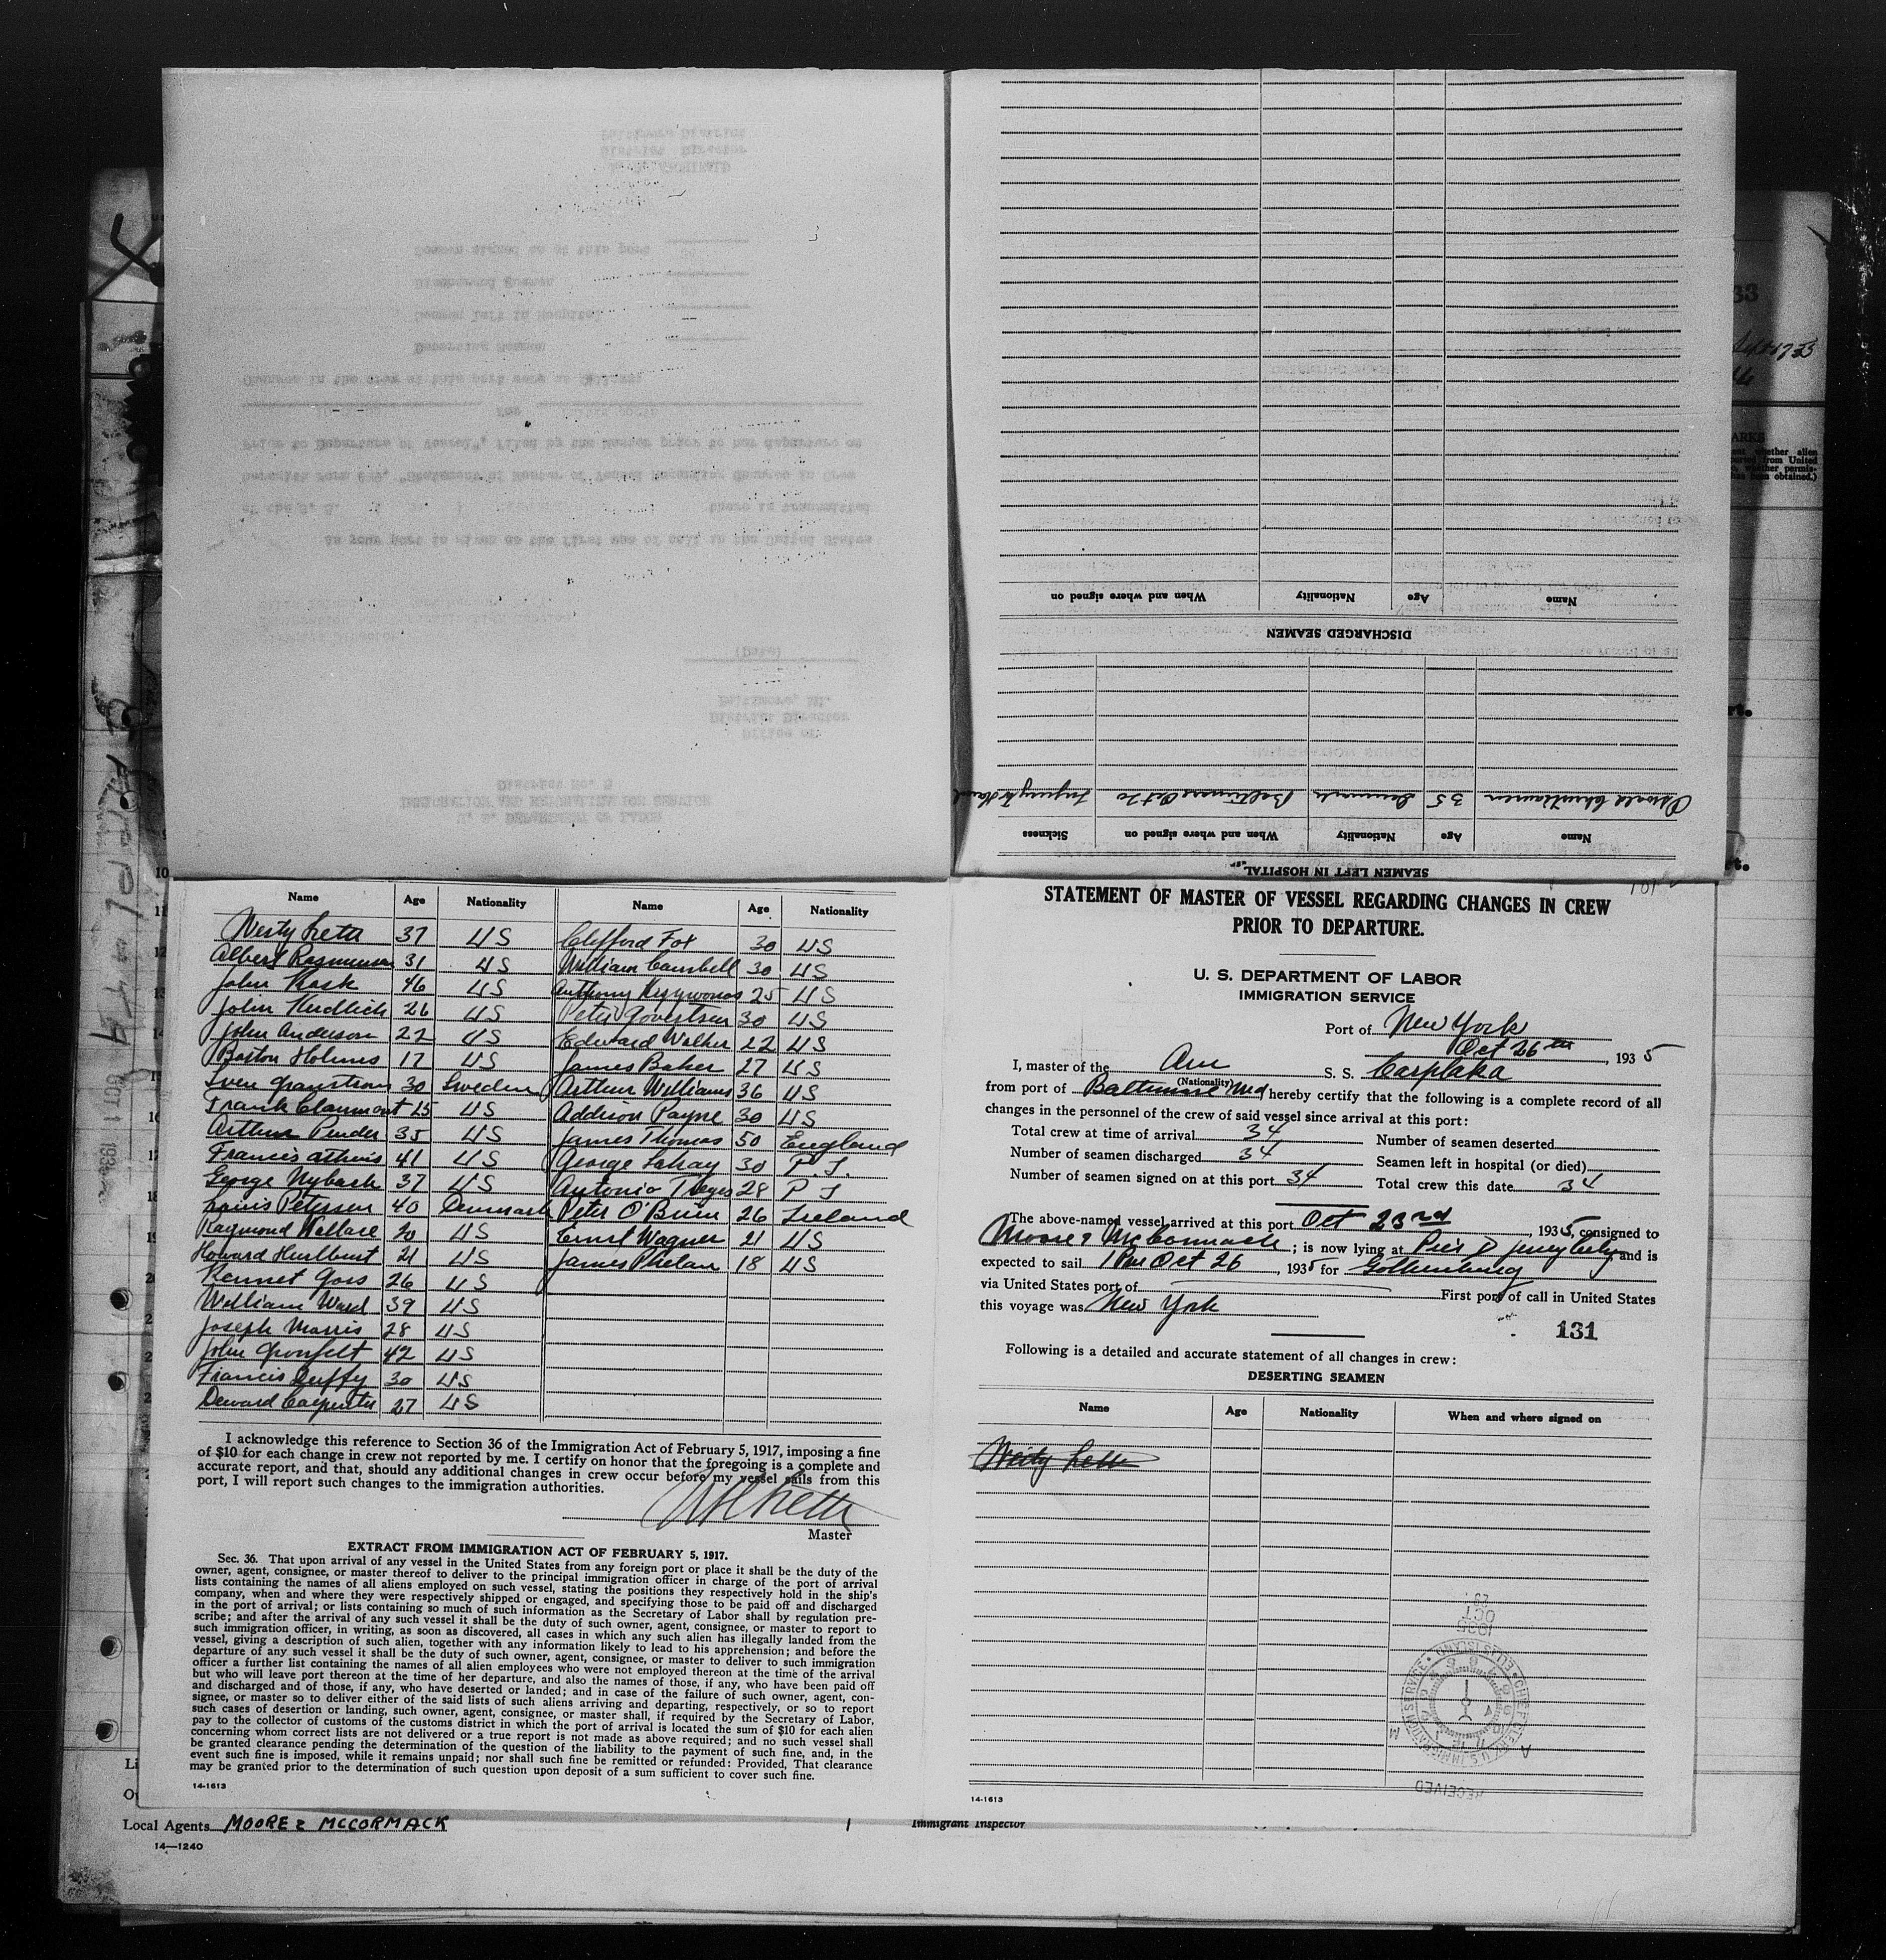 STATEMENT OF MASTER OF VESSEL REGARDING CHANGES IN CREW
PRIOR TO DEPARTURE.
U. S. DEPARTMENT OF LABOR
IMMIGRATION SERVICE
Port of New York
Oct 26th, 1935
I, master of the Am S. S. Carplaka
(Nationality)
from port of Baltimore Md, hereby certify that the following is a complete record of all
changes in the personnel of the crew of said vessel since arrival at this port:
Total crew at time of arrival 34 Number of seamen deserted
Number of seamen discharged 34 Seamen left in hospital (or died)
Number of seamen signed on at this port 34 Total crew this date 34
The above-named vessel arrived at this port Oct 23rd, 1935, consigned to
Moore & McCormack; is now lying at Pier D Jersey City and is
expected to sail 1 PM Oct 26, 1935 for Gothenburg
via United States port of First port of call in United States
this voyage was New York
131
Following is a detailed and accurate statement of all changes in crew:
DESERTING SEAMEN
Name Age Nationality When and where signed on
14-1613
Name Age Nationality Name Age Nationality
37 US Clifford Fox 30 US
Albert Rasmussen 31 US William Campbell 30 US
John Kask 46 US Anthony 25 US
John 26 US Peter Govertsen 30 US
John Anderson 22 US Edward Walker 22 US
Boston Holmes 17 US James Baker 27 US
Sven Granstrom 30 Sweden Arthur Williams 36 US
Frank Claumont 25 US Addison Payne 30 US
Arthur Pender 35 US James Thomas 50 England
Francis 41 US George 30 P. I.
George Nyback 37 US Antonio 28 P I
Louis Petersen 40 Denmark Peter O'Brien 26 Ireland
Raymond Wallace 20 US Ernst Wagner 21 US
Howard Hurlburt 21 US James Phelan 18 US
Kennet Goss 26 US
William Ward 39 US
Joseph Morris 28 US
John Gronfelt 42 US
Francis Duffy 30 US
Deward Carpenter 27 US
I acknowledge this reference to Section 36 of the Immigration Act of February 5, 1917, imposing a fine
of $10 for each change in crew not reported by me. I certify on honor that the foregoing is a complete and
accurate report, and that, should any additional changes in crew occur before my vessel sails from this
port, I will report such changes to the immigration authorities.
Master
EXTRACT FROM IMMIGRATION ACT OF FEBRUARY 5, 1917.
Sec. 36. That upon arrival of any vessel in the United States from any foreign port or place it shall be the duty of the
owner, agent, consignee, or master thereof to deliver to the principal immigration officer in charge of the port of arrival
lists containing the names of all aliens employed on such vessel, stating the positions they respectively hold in the ship's
company, when and where they were respectively shipped or engaged, and specifying those to be paid off and discharged
in the port of arrival; or lists containing so much of such information as the Secretary of Labor shall by regulation pre-
scribe; and after the arrival of any such vessel it shall be the duty of such owner, agent, consignee, or master to report to
such immigration officer, in writing, as soon as discovered, all cases in which any such alien has illegally landed from the
vessel, giving a description of such alien, together with any information likely to lead to his apprehension; and before the
departure of any such vessel it shall be the duty of such owner, agent, consignee, or master to deliver to such immigration
officer a further list containing the names of all alien employees who were not employed thereon at the time of the arrival
but who will leave port thereon at the time of her departure, and also the names of those, if any, who have been paid off
and discharged and of those, if any, who have deserted or landed; and in case of the failure of such owner, agent, con-
signee, or master so to deliver either of the said lists of such aliens arriving and departing, respectively, or so to report
such cases of desertion or landing, such owner, agent, consignee, or master shall, if required by the Secretary of Labor,
pay to the collector of customs of the customs district in which the port of arrival is located the sum of $10 for each alien
concerning whom correct lists are not delivered or a true report is not made as above required; and no such vessel shall
be granted clearance pending the determination of the question of the liability to the payment of such fine, and, in the
event such fine is imposed, while it remains unpaid; nor shall such fine be remitted or refunded: Provided, That clearance
may be granted prior to the determination of such question upon deposit of a sum sufficient to cover such fine.
14-1613
SEAMEN LEFT IN HOSPITAL
Name Age Nationality When and where signed on Sickness
35 Denmark Baltimore Oct 20 Injury to Hand
DISCHARGED SEAMEN
Name Age Nationality When and where signed on
RECEIVED
1935 OCT
Local Agents MOORE & MCCORMACK
Immigrant Inspector
14—1240